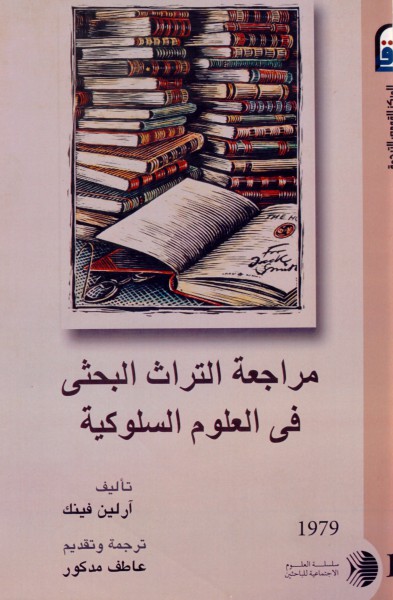 المركز القومى للترجمة
THE H
For
مراجعة التراث البحثى
فى العلوم السلوكية
تأليف
آرلين فينك
ترجمة وتقديم
عاطف مدكور
1979
سلسلة العلوم
الاجتماعية للباحثين